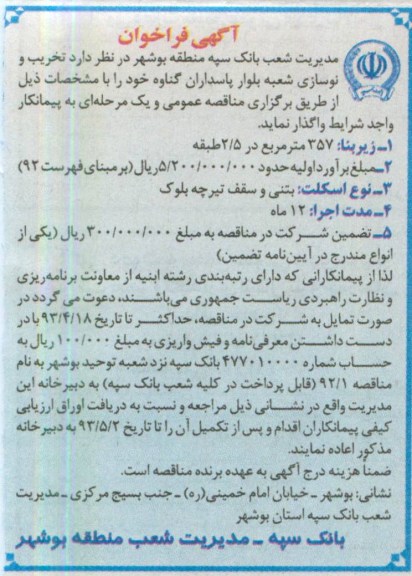 آگهی فراخوان
مدیریت شعب بانک سپه منطقه بوشهر در نظر دارد تخریب و
نوسازی شعبه بلوار پاسداران گناوه خود را با مشخصات ذیل
از طریق برگزاری مناقصه عمومی و یک مرحله‌ای به پیمانکار
واجد شرایط واگذار نماید.
۱ـ زیربنا: ۳۵۷ مترمربع در ۲/۵طبقه
۲ـ مبلغ برآورد اولیه حدود ۵/۲۰۰/۰۰۰/۰۰۰ریال (بر مبنای فهرست ۹۲)
۳ـ نوع اسکلت: بتنی و سقف تیرچه بلوک
۴ـ مدت اجرا: ۱۲ ماه
۵ـ تضمین شرکت در مناقصه به مبلغ ۳۰۰/۰۰۰/۰۰۰ ریال (یکی از
انواع مندرج در آیین‌نامه تضمین)
لذا از پیمانکارانی که دارای رتبه‌بندی رشته ابنیه از معاونت برنامه‌ریزی
و نظارت راهبردی ریاست جمهوری می‌باشند، دعوت می گردد در
صورت تمایل به شرکت در مناقصه، حداکثر تا تاریخ ۹۳/۴/۱۸ با در
دست داشتن معرفی‌نامه و فیش واریزی به مبلغ ۱۰۰/۰۰۰ ریال به
حساب شماره ۴۷۷۰۱۰۰۰۰ بانک سپه نزد شعبه توحید بوشهر به نام
مناقصه ۹۲/۱ (قابل پرداخت در کلیه شعب بانک سپه) به دبیرخانه این
مدیریت واقع در نشانی ذیل مراجعه و نسبت به دریافت اوراق ارزیابی
کیفی پیمانکاران اقدام و پس از تکمیل آن را تا تاریخ ۹۳/۵/۲ به دبیرخانه
مذکور اعاده نمایند.
ضمناً هزینه درج آگهی به عهده برنده مناقصه است.
نشانی: بوشهر ـ خیابان امام خمینی(ره) ـ جنب بسیج مرکزی ـ مدیریت
شعب بانک سپه استان بوشهر
بانک سپه ـ مدیریت شعب منطقه بوشهر